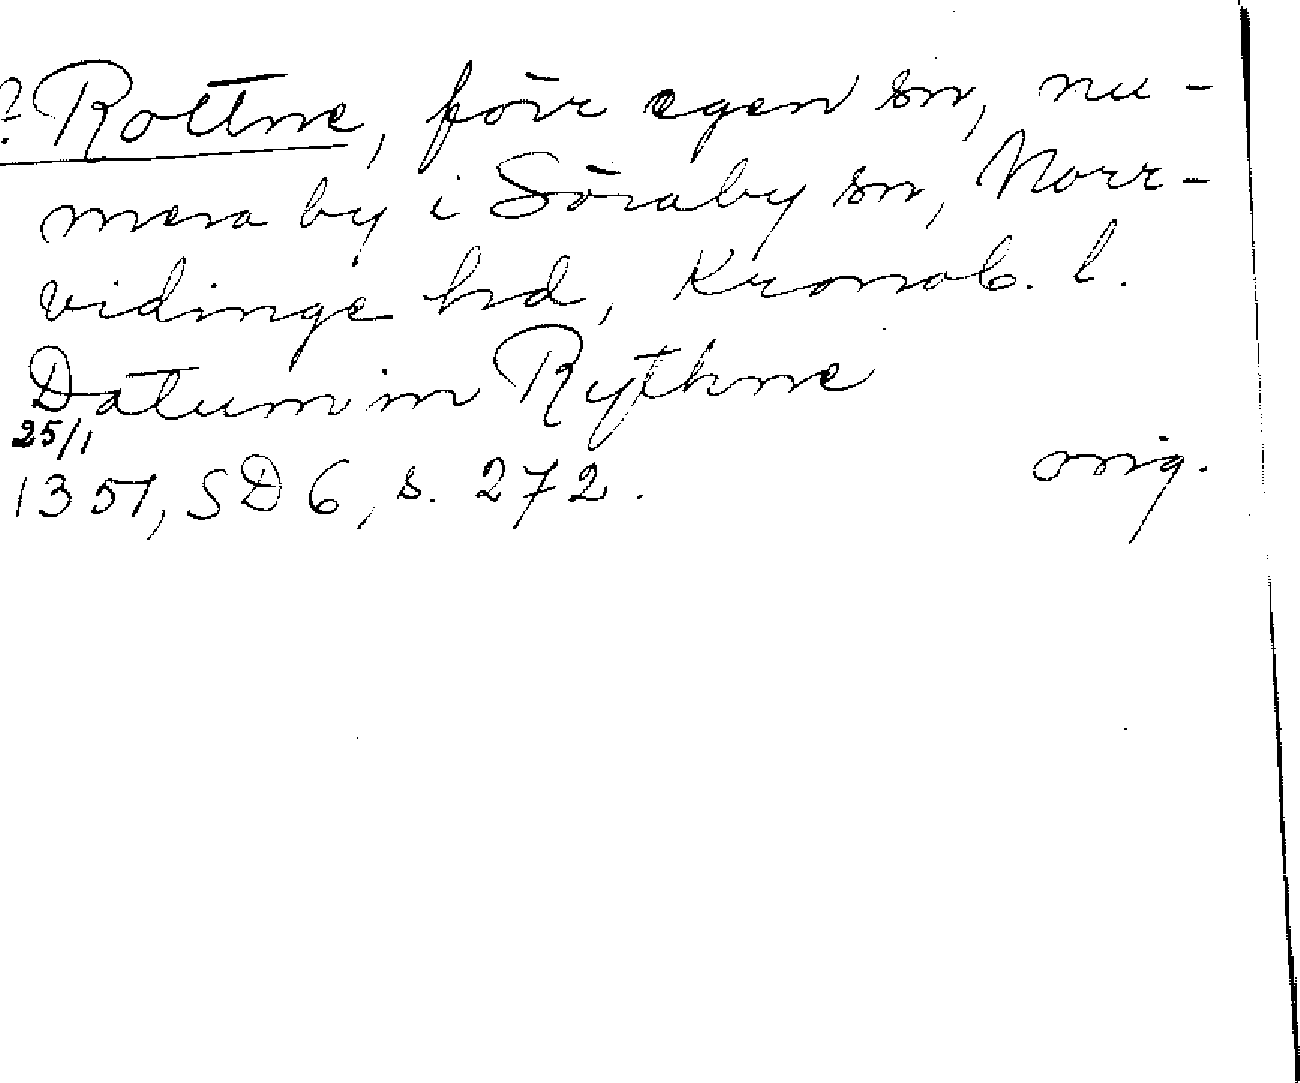 ? Rottne, förr egen sn, nu-
mera by i Söraby sn, Norr-
vidinge hd, Kronob. l.
Datum in Rythme
25/1
1351, SD 6, s. 272. orig.